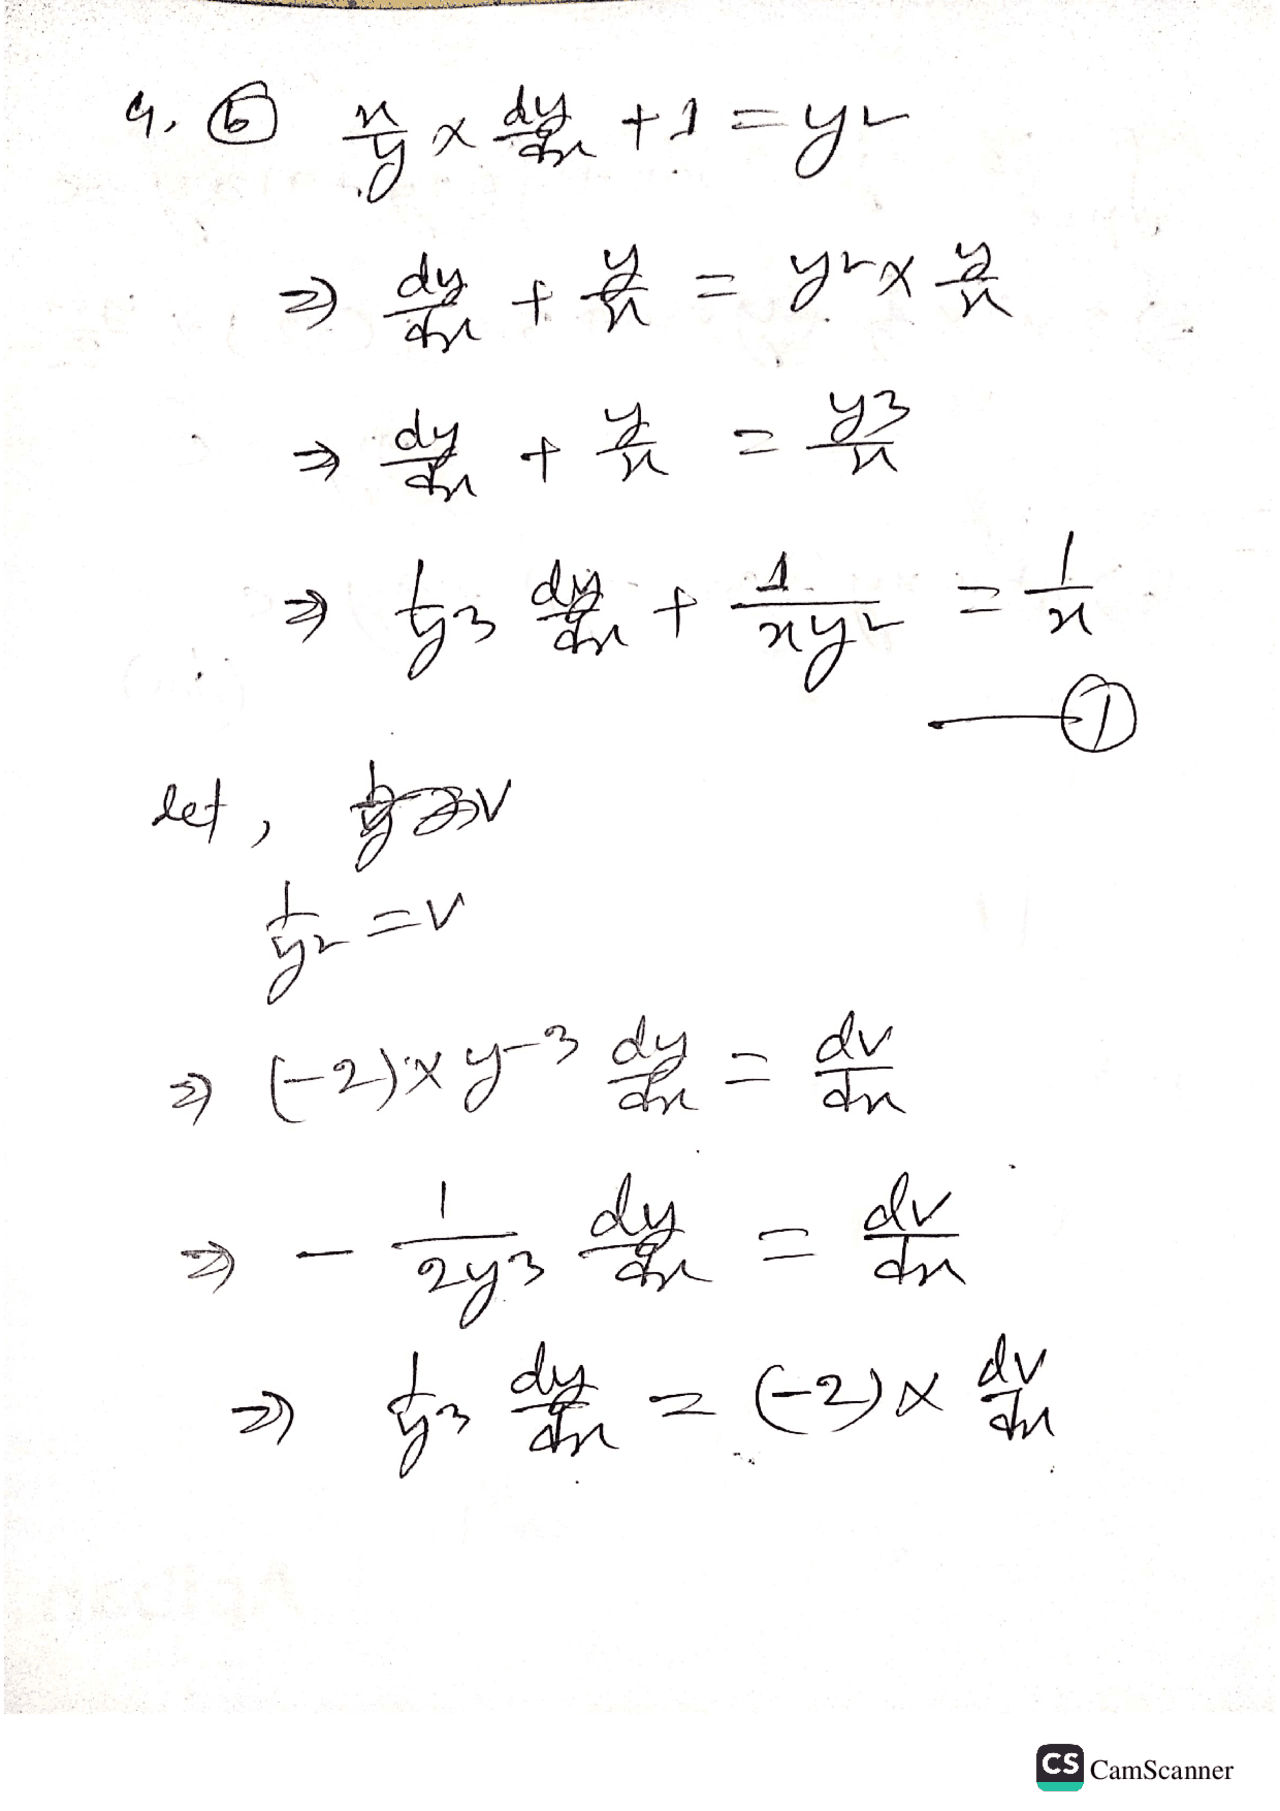 4. (b) x/y × dy/dx + 1 = y²
⇒ dy/dx + y/x = y² × y/x
⇒ dy/dx + y/x = y³/x
⇒ 1/y³ dy/dx + 1/xy² = 1/x
—— (1)
let,
1/y² = v
⇒ (-2) × y⁻³ dy/dx = dv/dx
⇒ - 1/2y³ dy/dx = dv/dx
⇒ 1/y³ dy/dx = (-2) × dv/dx
CS CamScanner